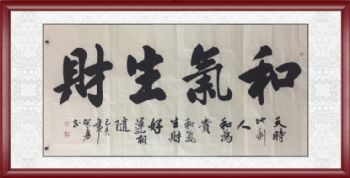 和氣生財
天時
地利
人
和為
貴
和氣
生財
好
運相
隨